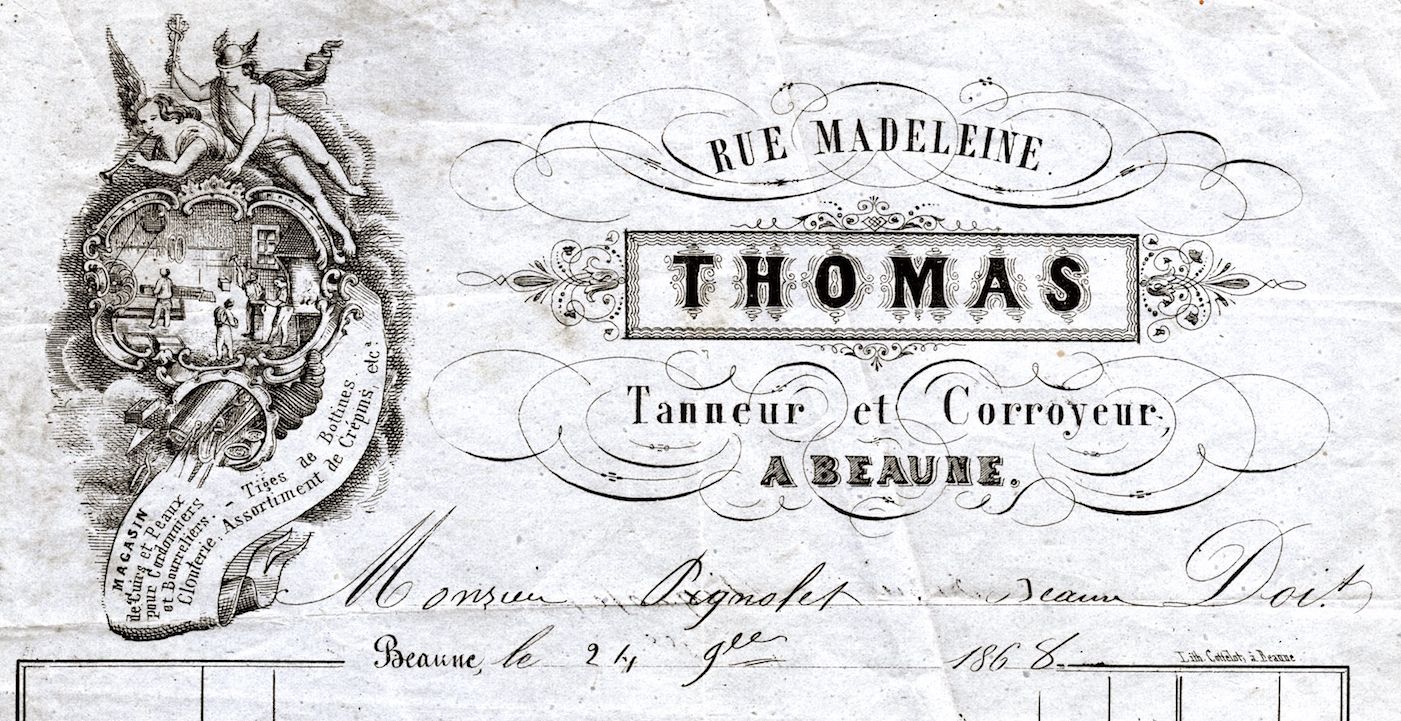 RUE MADELEINE
THOMAS
Tanneur et Corroyeur,
A BEAUNE.
MAGASIN
de Cuirs et Peaux
pour Cordonniers
et Bourreliers. - Tiges de Bottines
Clouterie, Assortiment de Crépins, etca
Monsieur Pignolet Beaune Doit
Beaune, le 24 9bre 1868.
Lith. Cottelot, à Beaune